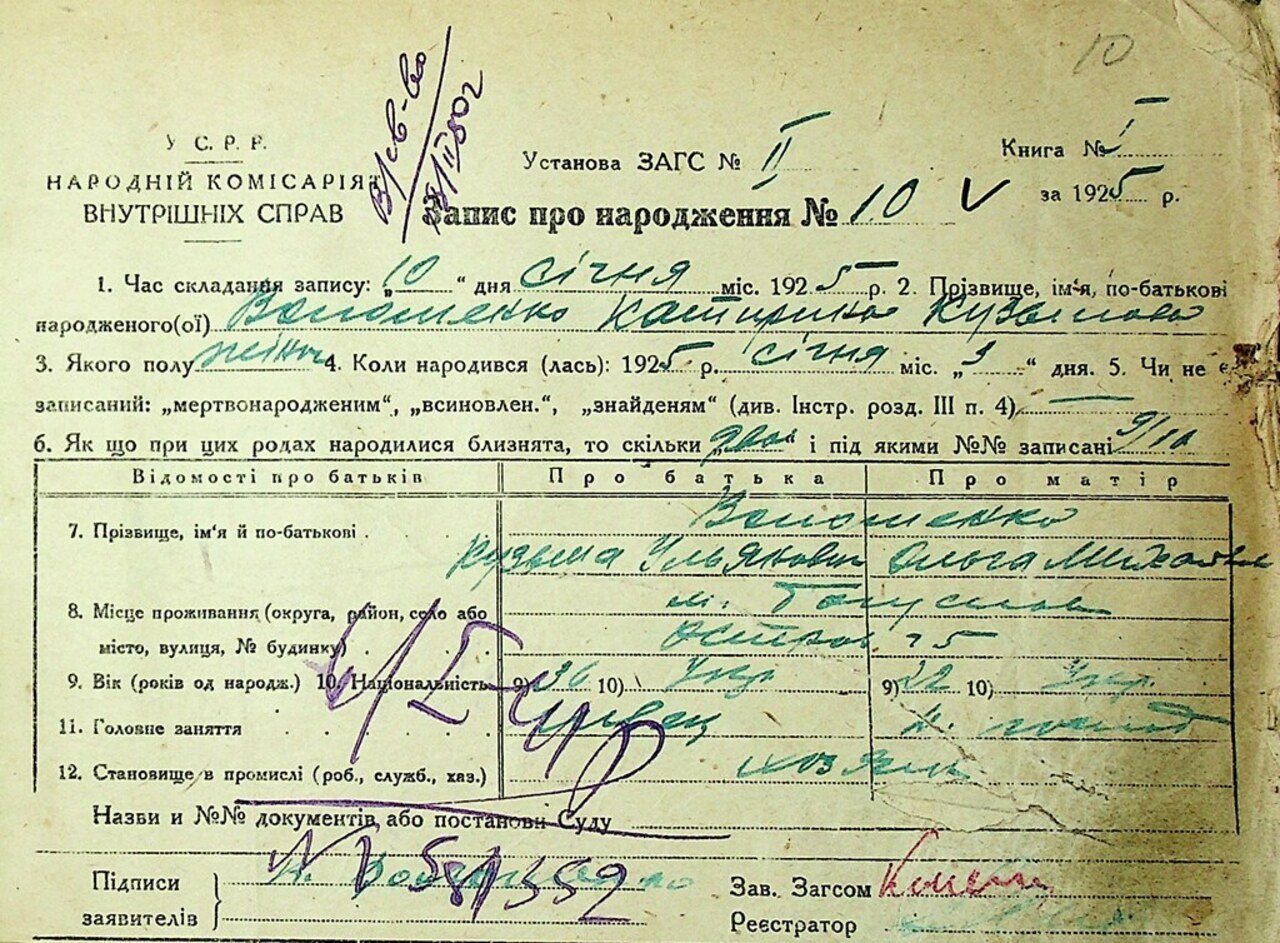 10
У. С. Р. Р.
НАРОДНІЙ КОМІСАРІЯТ
ВНУТРІШНІХ СПРАВ
Установа ЗАГС № II
Книга № I
за 1925 р.
Запис про народження № 10
1. Час складання запису: „10“ дня січня міс. 1925 р. 2. Прізвище, ім'я, по-батькові
народженого(ої) Волошенко Катирина Кузьмовна
3. Якого полу жіноч 4. Коли народився (лась): 1925 р. січня міс. „3“ дня. 5. Чи не є
записаний: „мертвонародженим“, „всиновлен.“, „знайденям“ (див. Інстр. розд. III п. 4) —
6. Як що при цих родах народилися близнята, то скільки двоє і під якими №№ записані 9/10
Відомості про батьків Про батька Про матір
7. Прізвище, ім'я й по-батькові Волошенко
Кузьма Ульянович Ольга Михайл
8. Місце проживання (округа, район, село або м. Богуслав
місто, вулиця, № будинку) Остров 75
9. Вік (років од народж.) 10. Національність 9) 36 10) Укр. 9) 22 10) Укр.
11. Головне заняття
12. Становище в промислі (роб., служб., хаз.) хозяин
Назви и №№ документів або постанови Суду
Підписи
заявителів
Зав. Загсом
Реєстратор